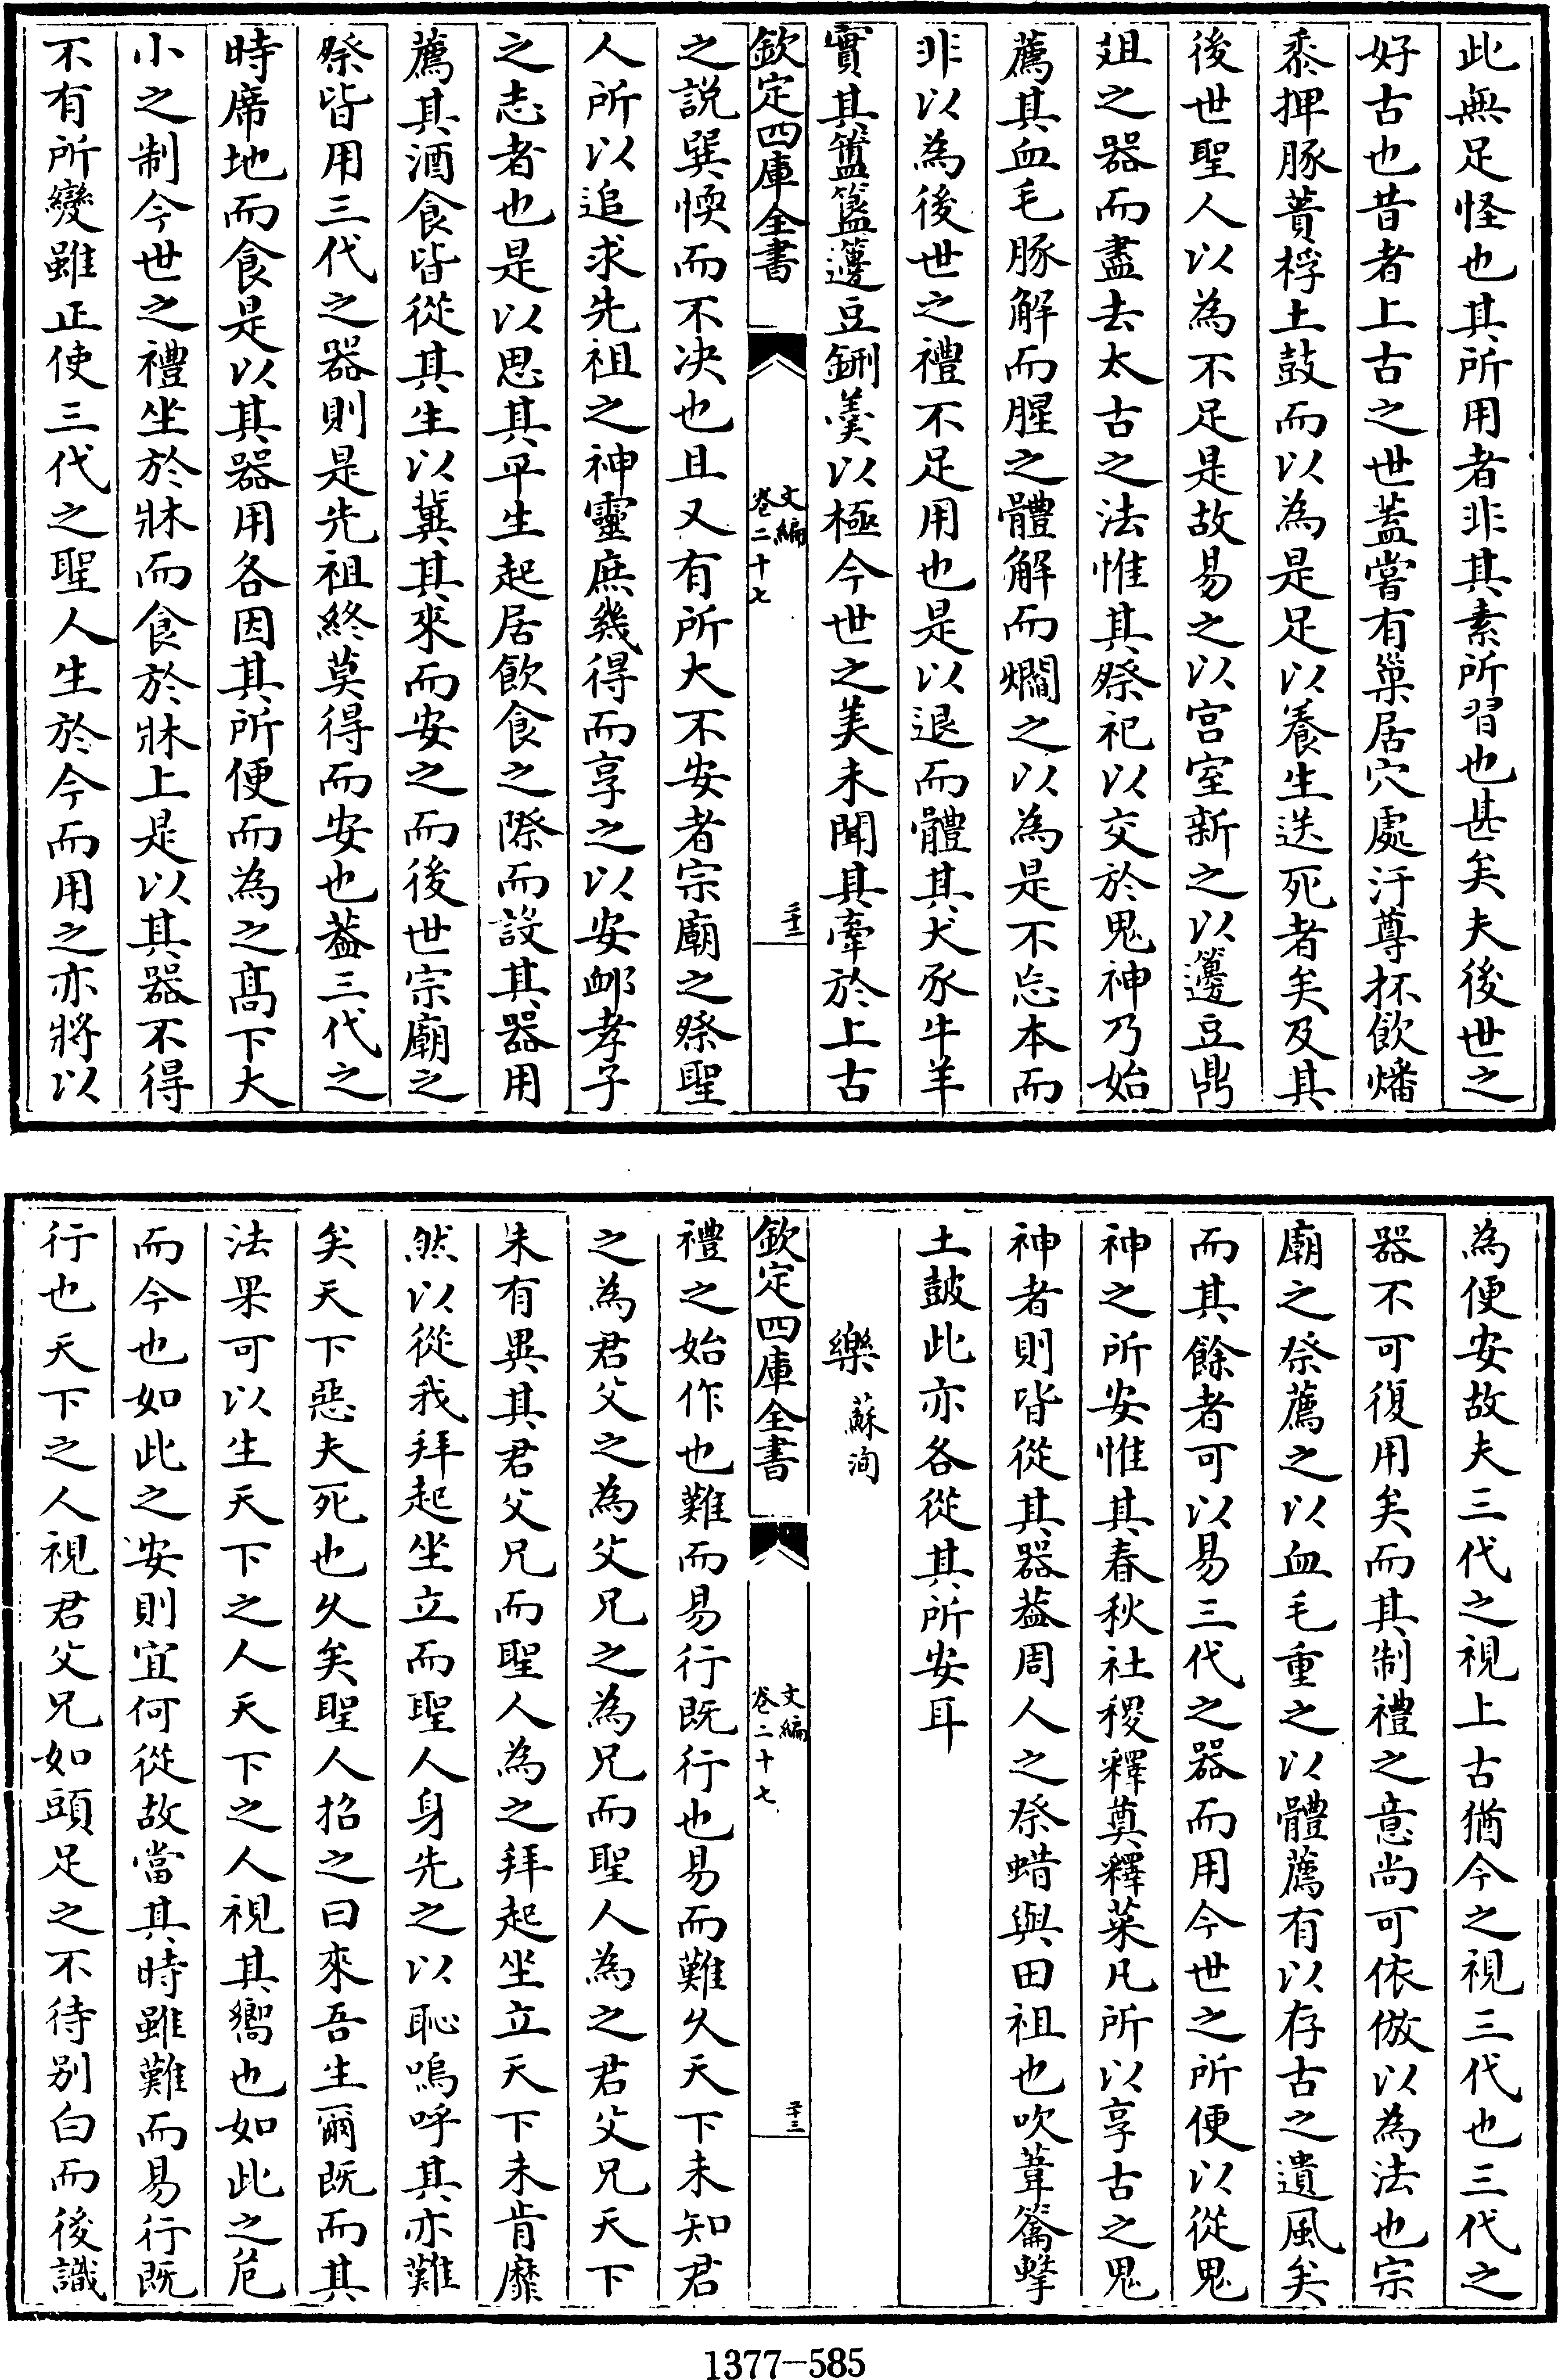 此無足怪也其所用者非其素所習也甚矣夫後世之
好古也昔者上古之世蓋嘗有巢居穴處汙尊抔飲燔
黍捭豚蕢桴土鼓而以為是足以養生送死者矣及其
後世聖人以為不足是故易之以宫室新之以籩豆鼎
俎之器而盡去太古之法惟其祭祀以交於鬼神乃始
薦其血毛豚解而腥之體解而爓之以為是不忘本而
非以為後世之禮不足用也是以退而體其犬豕牛羊
實其簠簋籩豆鉶羹以極今世之美未聞其牽於上古
欽定四庫全書
文編
卷二十七
二十二
之説巽愞而不決也且又有所大不安者宗廟之祭聖
人所以追求先祖之神靈庶幾得而享之以安卹孝子
之志者也是以思其平生起居飲食之際而設其器用
薦其酒食皆從其生以冀其來而安之而後世宗廟之
祭皆用三代之器則是先祖終莫得而安也葢三代之
時席地而食是以其器用各因其所便而為之髙下大
小之制今世之禮坐於牀而食於牀上是以其器不得
不有所變雖正使三代之聖人生於今而用之亦將以
為便安故夫三代之視上古猶今之視三代也三代之
器不可復用矣而其制禮之意尚可依倣以為法也宗
廟之祭薦之以血毛重之以體薦有以存古之遺風矣
而其餘者可以易三代之器而用今世之所便以從鬼
神之所安惟其春秋社稷釋奠釋菜凡所以享古之鬼
神者則皆從其器葢周人之祭蜡與田祖也吹葦籥擊
土鼓此亦各從其所安耳
樂 蘇洵
欽定四庫全書
文編
卷二十七
二十三
禮之始作也難而易行既行也易而難久天下未知君
之為君父之為父兄之為兄而聖人為之君父兄天下
未有異其君父兄而聖人為之拜起坐立天下未肯靡
然以從我拜起坐立而聖人身先之以恥嗚呼其亦難
矣天下惡夫死也久矣聖人招之曰來吾生爾既而其
法果可以生天下之人天下之人視其嚮也如此之危
而今也如此之安則宜何從故當其時雖難而易行既
行也天下之人視君父兄如頭足之不待别白而後識
1377—585